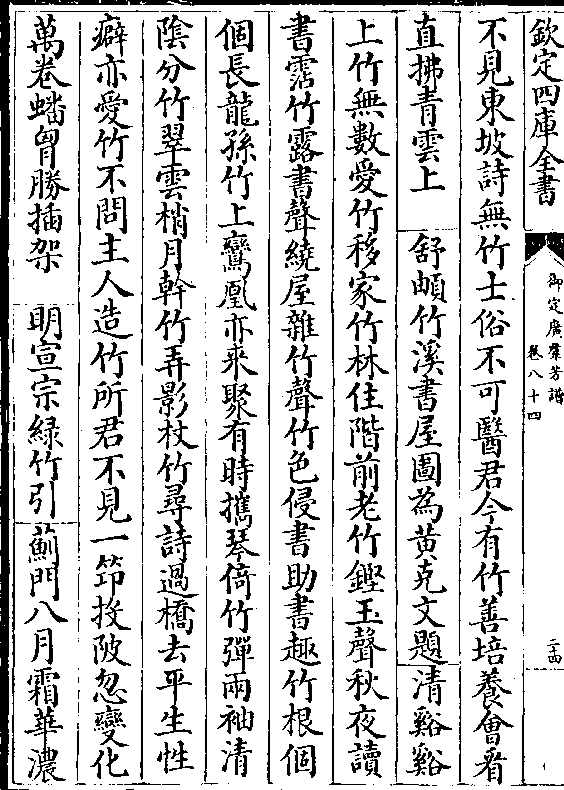 欽定四庫全書
御定廣羣芳譜
卷八十四
二十四
不見東坡詩無竹士俗不可醫君今有竹善培養會看
直拂青雲上　舒頔竹溪書屋圖為黃克文題清谿谿
上竹無數愛竹移家竹林住階前老竹鏗玉聲秋夜讀
書霑竹露書聲繞屋雜竹聲竹色侵書助書趣竹根個
個長龍孫竹上鸞凰亦來聚有時攜琴倚竹彈兩袖清
陰分竹翠雲梢月幹竹弄影杖竹尋詩過橋去平生性
癖亦愛竹不問主人造竹所君不見一笻投陂忽變化
萬卷蟠胷勝插架　明宣宗緑竹引薊門八月霜華濃